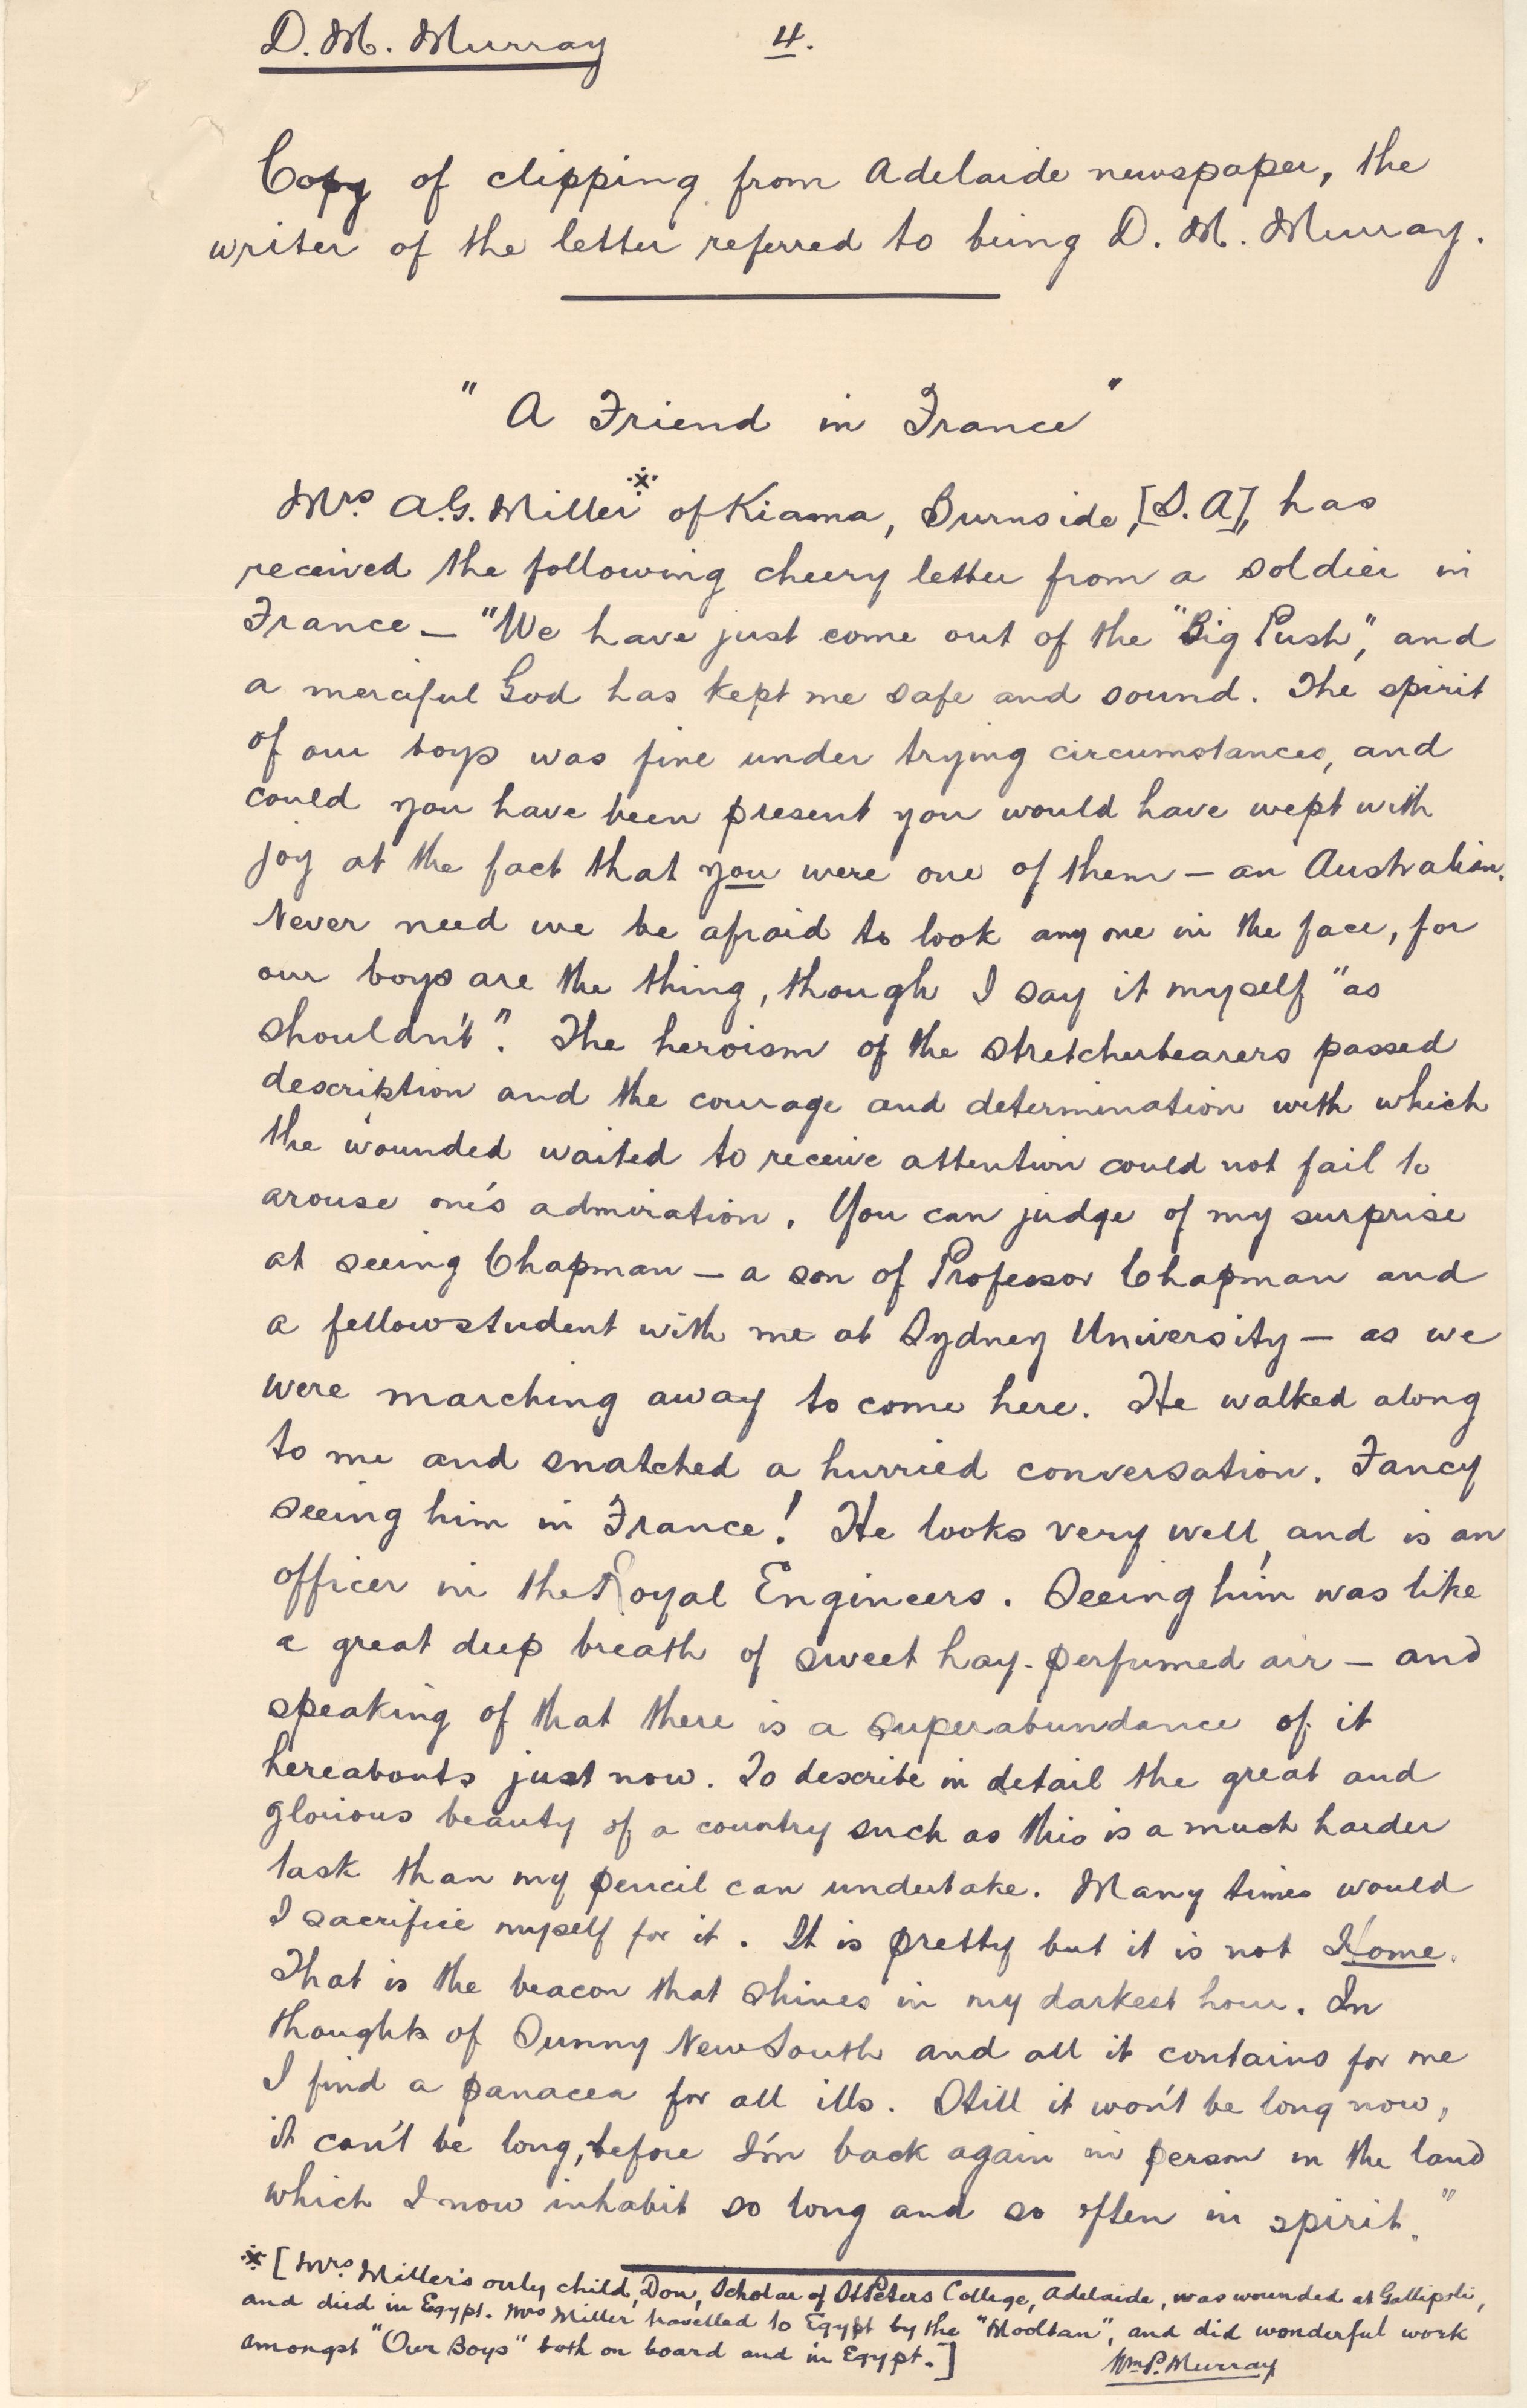 D. M. Murray 4.
Copy of clipping from Adelaide newspaper, the
writer of the letter referred to being D. M. Murray.
"A Friend in France"
Mrs. A.G. Miller※ of Kiama, Burnside, [S.A], has
received the following cheery letter from a soldier in
France — "We have just come out of the "Big Push", and
a merciful God has kept me safe and sound. The spirit
of our boys was fine under trying circumstances, and
could you have been present you would have wept with
joy at the fact that you were one of them — an Australian.
Never need we be afraid to look any one in the face, for
our boys are the thing, though I say it myself "as
shouldn't". The heroism of the stretcherbearers passed
description and the courage and determination with which
the wounded waited to receive attention could not fail to
arouse one's admiration. You can judge of my surprise
at seeing Chapman — a son of Professor Chapman and
a fellowstudent with me at Sydney University — as we
were marching away to come here. He walked along
to me and snatched a hurried conversation. Fancy
seeing him in France! He looks very well, and is an
officer in the Royal Engineers. Seeing him was like
a great deep breath of sweet hay-perfumed air — and
speaking of that there is a superabundance of it
hereabouts just now. To describe in detail the great and
glorious beauty of a country such as this is a much harder
task than my pencil can undertake. Many times would
I sacrifice myself for it. It is pretty but it is not Home.
That is the beacon that shines in my darkest hour. In
thoughts of Sunny New South and all it contains for me
I find a panacea for all ills. Still it won't be long now,
it can't be long, before I'm back again in person in the land
which I now inhabit so long and so often in spirit."
※ [Mrs. Miller's only child, Don, Scholar of St Peters College, Adelaide, was wounded at Gallipoli,
and died in Egypt. Mrs Miller travelled to Egypt by the "Mooltan", and did wonderful work
amongst "Our Boys" both on board and in Egypt.]
Wm. P. Murray